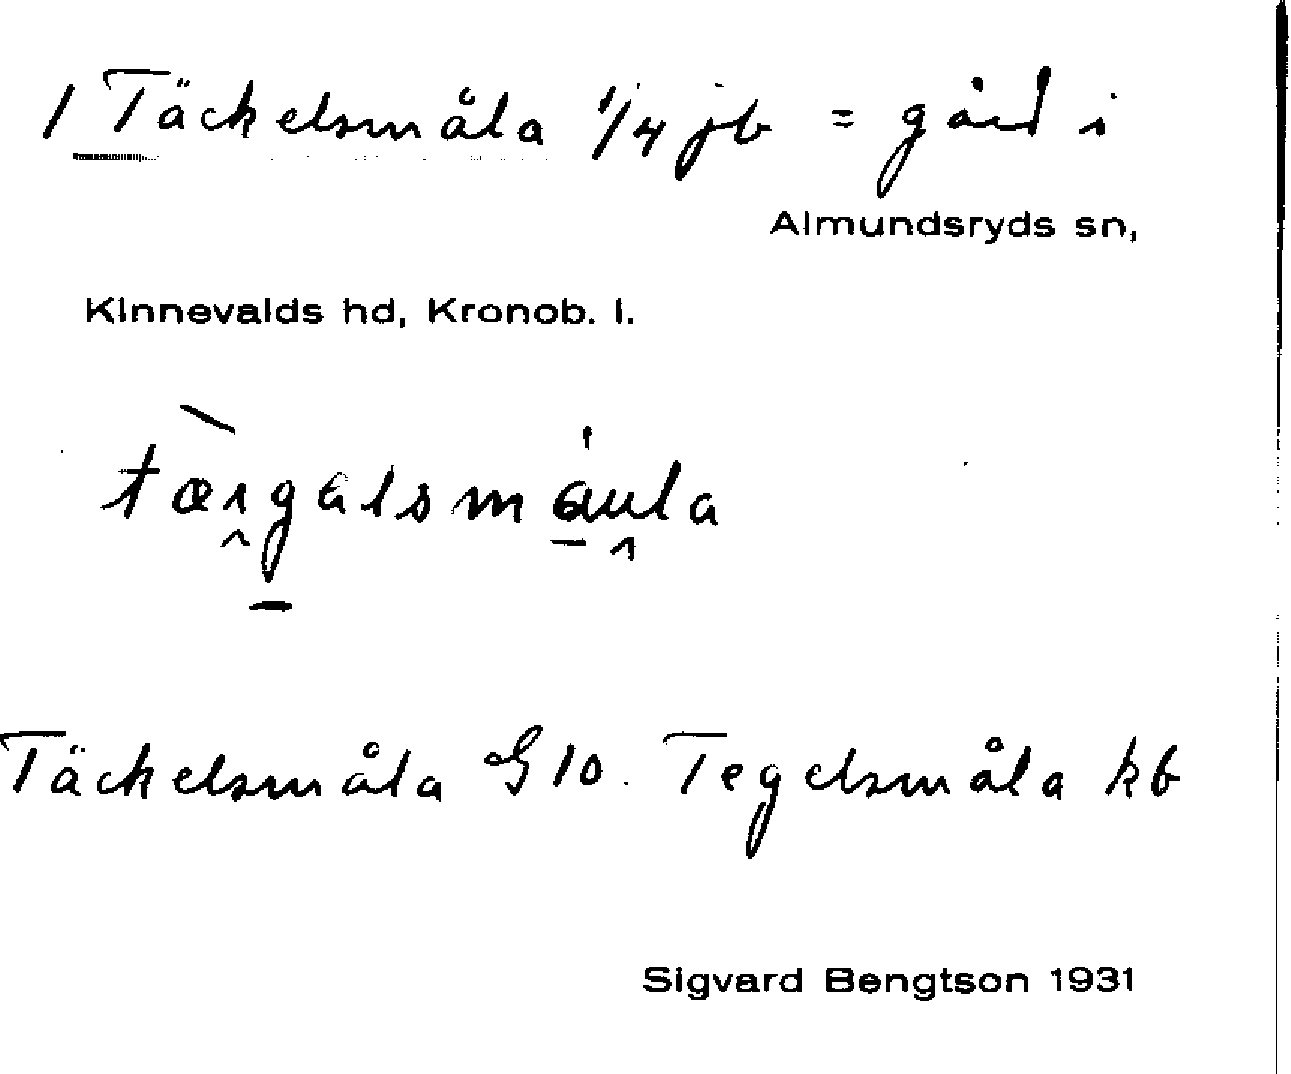 1 Täckelsmåla 1/4 jb = gård i
Almundsryds sn,
Kinnevalds hd, Kronob. l.
tæ̀ıgalsmaula
Täckelsmåla G 10. Tegelsmåla kb
Sigvard Bengtson 1931